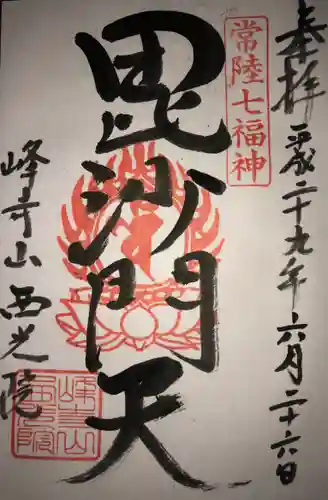 奉拝
平成二十九年六月二十六日
常陸七福神
毘沙門天
峰寺山西光院
峰寺山西光院